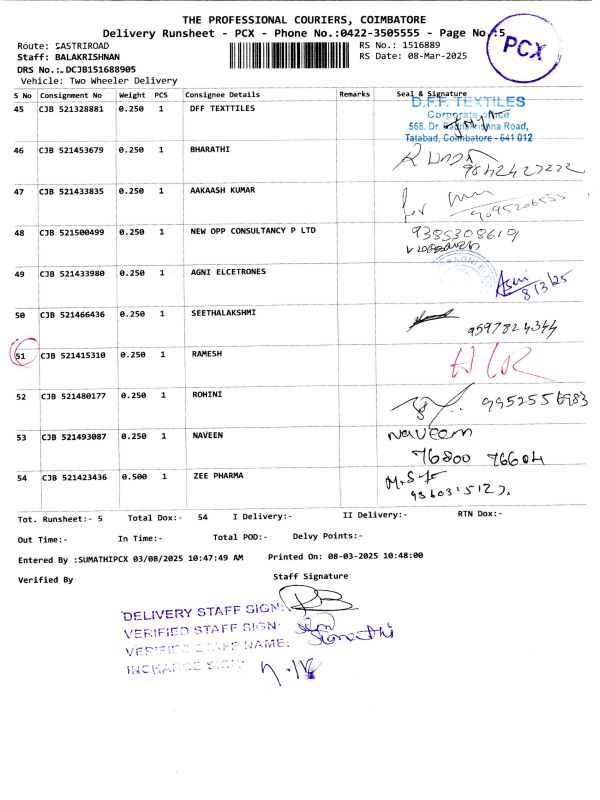 THE PROFESSIONAL COURIERS, COIMBATORE
Delivery Runsheet - PCX - Phone No.:0422-3505555 - Page No.:5
PCX
Route: SASTRIROAD
RS No.: 1516889
Staff: BALAKRISHNAN
RS Date: 08-Mar-2025
DRS No.:.DCJB151688905
Vehicle: Two Wheeler Delivery
S No Consignment No Weight PCS Consignee Details Remarks Seal & Signature
45 CJB 521328881 0.250 1 DFF TEXTTILES
D.F.F. TEXTILES
Corporate Office
568, Dr. Radhakrishna Road,
Tatabad, Coimbatore - 641 012
46 CJB 521453679 0.250 1 BHARATHI
9842427222
47 CJB 521433835 0.250 1 AAKAASH KUMAR
for
9095206555
48 CJB 521500499 0.250 1 NEW OPP CONSULTANCY P LTD
9385308619
49 CJB 521433980 0.250 1 AGNI ELCETRONES
8/3/25
50 CJB 521466436 0.250 1 SEETHALAKSHMI
9597824344
51 CJB 521415310 0.250 1 RAMESH
52 CJB 521480177 0.250 1 ROHINI
9952556983
53 CJB 521493087 0.250 1 NAVEEN
Naveen
76800 76604
54 CJB 521423436 0.500 1 ZEE PHARMA
Tot. Runsheet:- 5 Total Dox:- 54 I Delivery:- II Delivery:- RTN Dox:-
Out Time:- In Time:- Total POD:- Delvy Points:-
Entered By :SUMATHIPCX 03/08/2025 10:47:49 AM Printed On: 08-03-2025 10:48:00
Verified By Staff Signature
DELIVERY STAFF SIGN:
VERIFIED STAFF SIGN:
VERIFIED STAFF NAME:
INCHARGE SIGN: